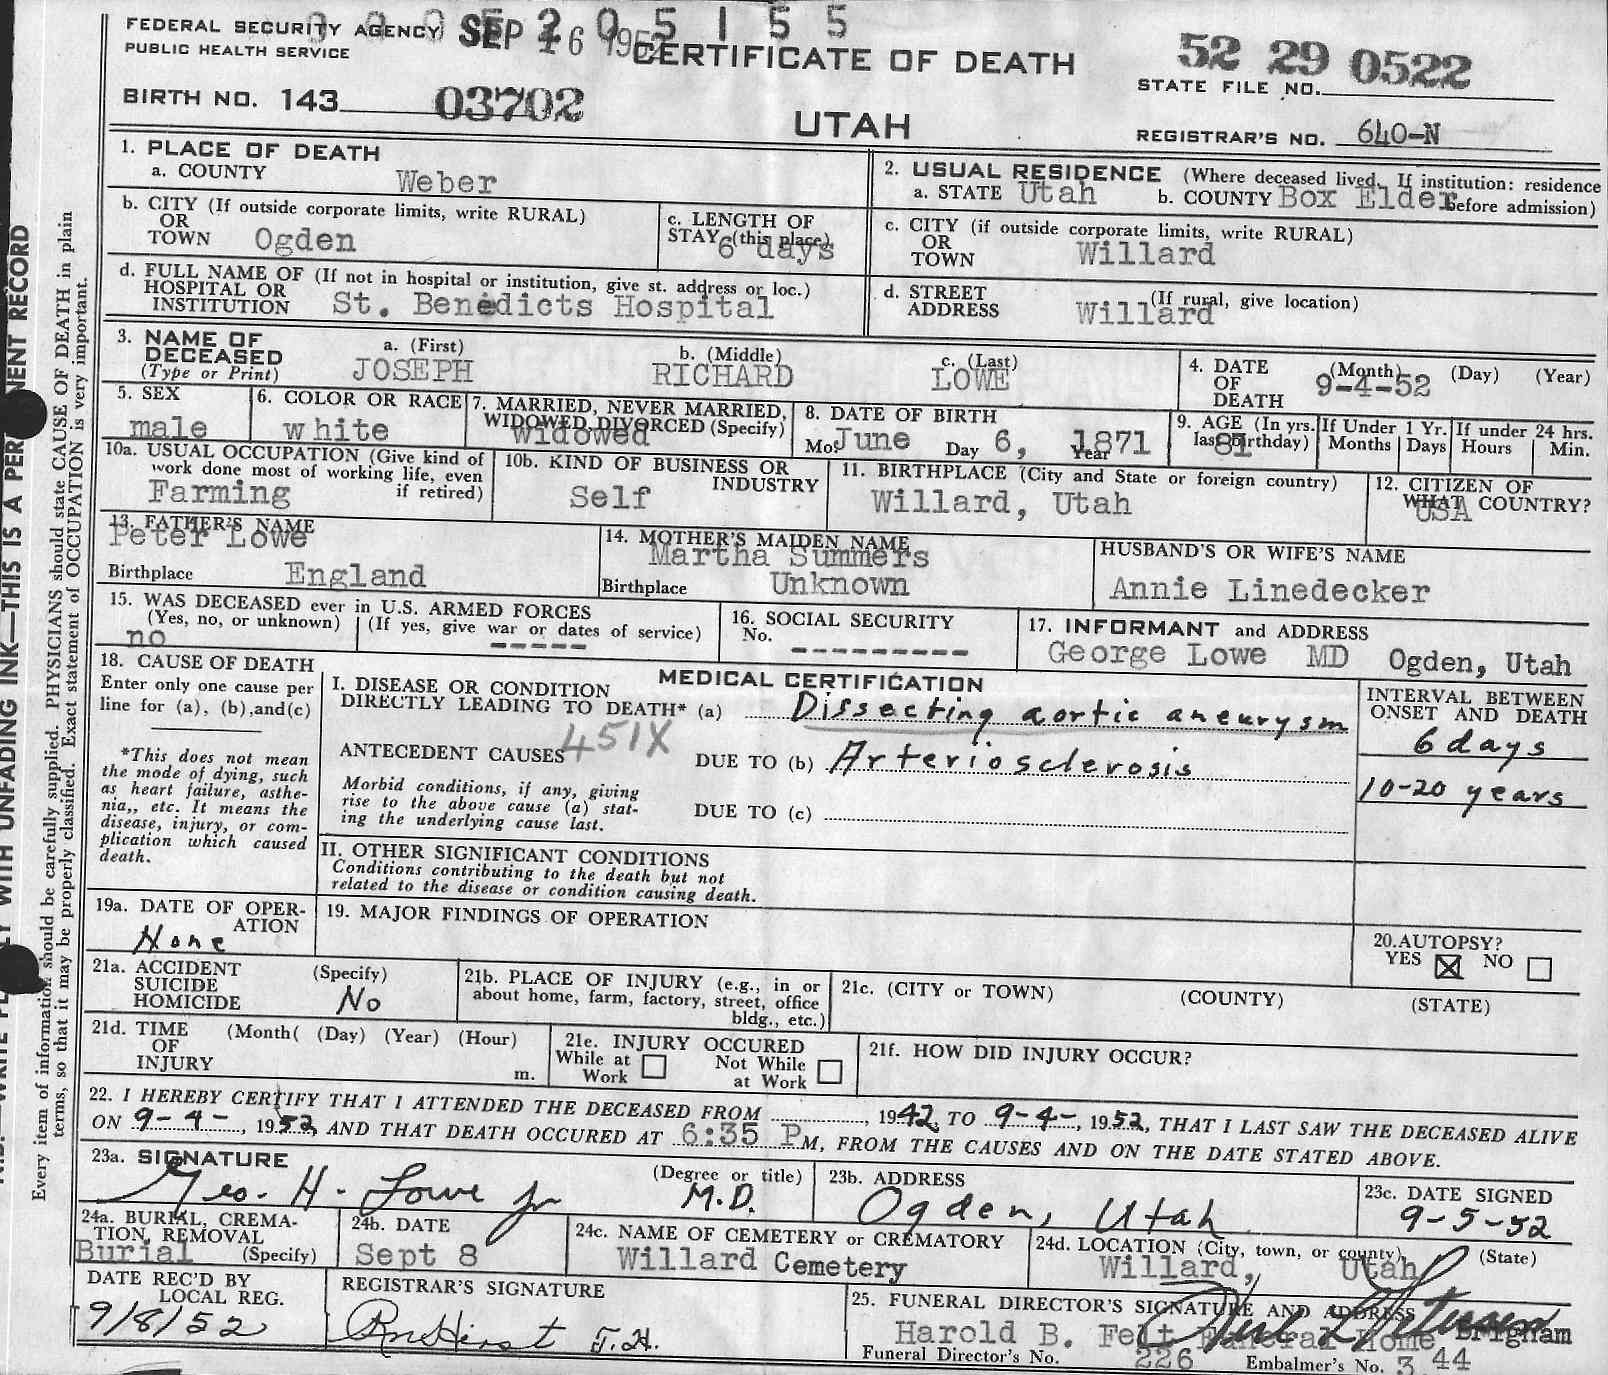 FEDERAL SECURITY AGENCY
PUBLIC HEALTH SERVICE
SEP 16 1952
205155
CERTIFICATE OF DEATH
UTAH
BIRTH NO. 143 03702
52 29 0522
STATE FILE NO.
REGISTRAR'S NO. 640-N
1. PLACE OF DEATH
a. COUNTY Weber
2. USUAL RESIDENCE (Where deceased lived. If institution: residence before admission)
a. STATE Utah b. COUNTY Box Elder
b. CITY (If outside corporate limits, write RURAL)
OR
TOWN Ogden
c. LENGTH OF
STAY (this place) 6 days
c. CITY (if outside corporate limits, write RURAL)
OR
TOWN Willard
d. FULL NAME OF (If not in hospital or institution, give st. address or loc.)
HOSPITAL OR
INSTITUTION St. Benedicts Hospital
d. STREET (If rural, give location)
ADDRESS Willard
3. NAME OF
DECEASED
(Type or Print)
a. (First) JOSEPH
b. (Middle) RICHARD
c. (Last) LOWE
4. DATE (Month) (Day) (Year)
OF
DEATH 9-4-52
5. SEX
male
6. COLOR OR RACE
white
7. MARRIED, NEVER MARRIED,
WIDOWED, DIVORCED (Specify)
widowed
8. DATE OF BIRTH
Mo. June Day 6, Year 1871
9. AGE (In yrs. last birthday) 81
If Under 1 Yr. Months Days
If under 24 hrs. Hours Min.
10a. USUAL OCCUPATION (Give kind of
work done most of working life, even
if retired)
Farming
10b. KIND OF BUSINESS OR
INDUSTRY
Self
11. BIRTHPLACE (City and State or foreign country)
Willard, Utah
12. CITIZEN OF
WHAT COUNTRY?
USA
13. FATHER'S NAME
Peter Lowe
Birthplace England
14. MOTHER'S MAIDEN NAME
Martha Summers
Birthplace Unknown
HUSBAND'S OR WIFE'S NAME
Annie Linedecker
15. WAS DECEASED ever in U.S. ARMED FORCES
(Yes, no, or unknown) (If yes, give war or dates of service)
no -----
16. SOCIAL SECURITY
No. ---------
17. INFORMANT and ADDRESS
George Lowe MD Ogden, Utah
18. CAUSE OF DEATH
Enter only one cause per
line for (a), (b),and(c)
*This does not mean
the mode of dying, such
as heart failure, asthe-
nia,, etc. It means the
disease, injury, or com-
plication which caused
death.
MEDICAL CERTIFICATION
I. DISEASE OR CONDITION
DIRECTLY LEADING TO DEATH* (a) Dissecting aortic aneurysm
ANTECEDENT CAUSES 451X
DUE TO (b) Arteriosclerosis
Morbid conditions, if any, giving
rise to the above cause (a) stat-
ing the underlying cause last.
DUE TO (c)
INTERVAL BETWEEN
ONSET AND DEATH
6 days
10-20 years
II. OTHER SIGNIFICANT CONDITIONS
Conditions contributing to the death but not
related to the disease or condition causing death.
19a. DATE OF OPER-
ATION
None
19. MAJOR FINDINGS OF OPERATION
20.AUTOPSY?
YES ☒ NO ☐
21a. ACCIDENT (Specify)
SUICIDE
HOMICIDE No
21b. PLACE OF INJURY (e.g., in or
about home, farm, factory, street, office
bldg., etc.)
21c. (CITY or TOWN) (COUNTY) (STATE)
21d. TIME (Month( (Day) (Year) (Hour)
OF
INJURY m.
21e. INJURY OCCURED
While at Work ☐ Not While at Work ☐
21f. HOW DID INJURY OCCUR?
22. I HEREBY CERTIFY THAT I ATTENDED THE DECEASED FROM , 1942, TO 9-4-, 1952, THAT I LAST SAW THE DECEASED ALIVE
ON 9-4-, 1952, AND THAT DEATH OCCURED AT 6:35 PM, FROM THE CAUSES AND ON THE DATE STATED ABOVE.
23a. SIGNATURE (Degree or title)
Geo. H. Lowe Jr M.D.
23b. ADDRESS
Ogden, Utah
23c. DATE SIGNED
9-5-52
24a. BURIAL, CREMA-
TION, REMOVAL
Burial (Specify)
24b. DATE
Sept 8
24c. NAME OF CEMETERY or CREMATORY
Willard Cemetery
24d. LOCATION (City, town, or county) (State)
Willard, Utah
DATE REC'D BY
LOCAL REG.
9/8/52
REGISTRAR'S SIGNATURE
J.H.
25. FUNERAL DIRECTOR'S SIGNATURE AND ADDRESS
Harold B. Felt Funeral Home Brigham
Funeral Director's No. 226 Embalmer's No. 3 44
Every item of information should be carefully supplied. PHYSICIANS should state CAUSE OF DEATH in plain
terms, so that it may be properly classified. Exact statement of OCCUPATION is very important.
WITH UNFADING INK—THIS IS A PER NENT RECORD